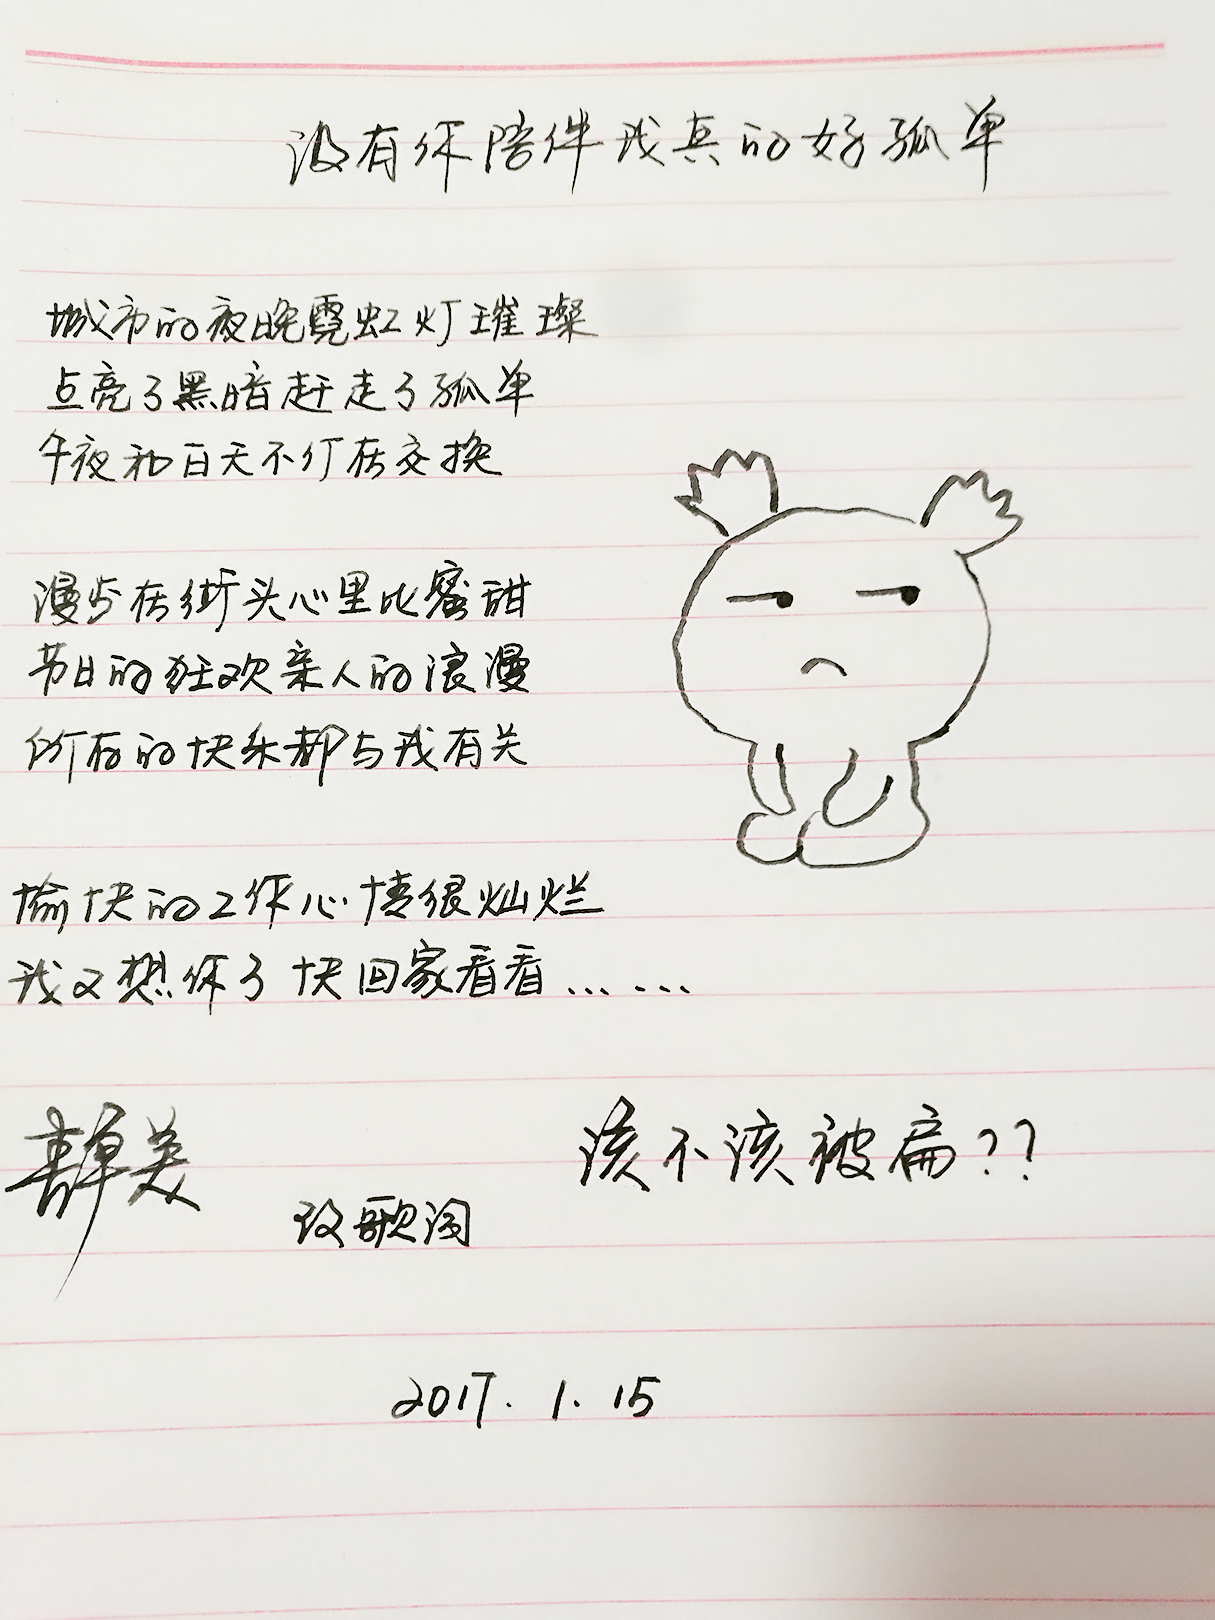 没有你陪伴我真的好孤单
城市的夜晚霓虹灯璀璨
点亮了黑暗赶走了孤单
午夜和白天不仃在交换
漫步在街头心里比蜜甜
节日的狂欢亲人的浪漫
所有的快乐都与我有关
愉快的工作心情很灿烂
我又想你了快回家看看……
该不该被扁??
改歌词
2017.1.15